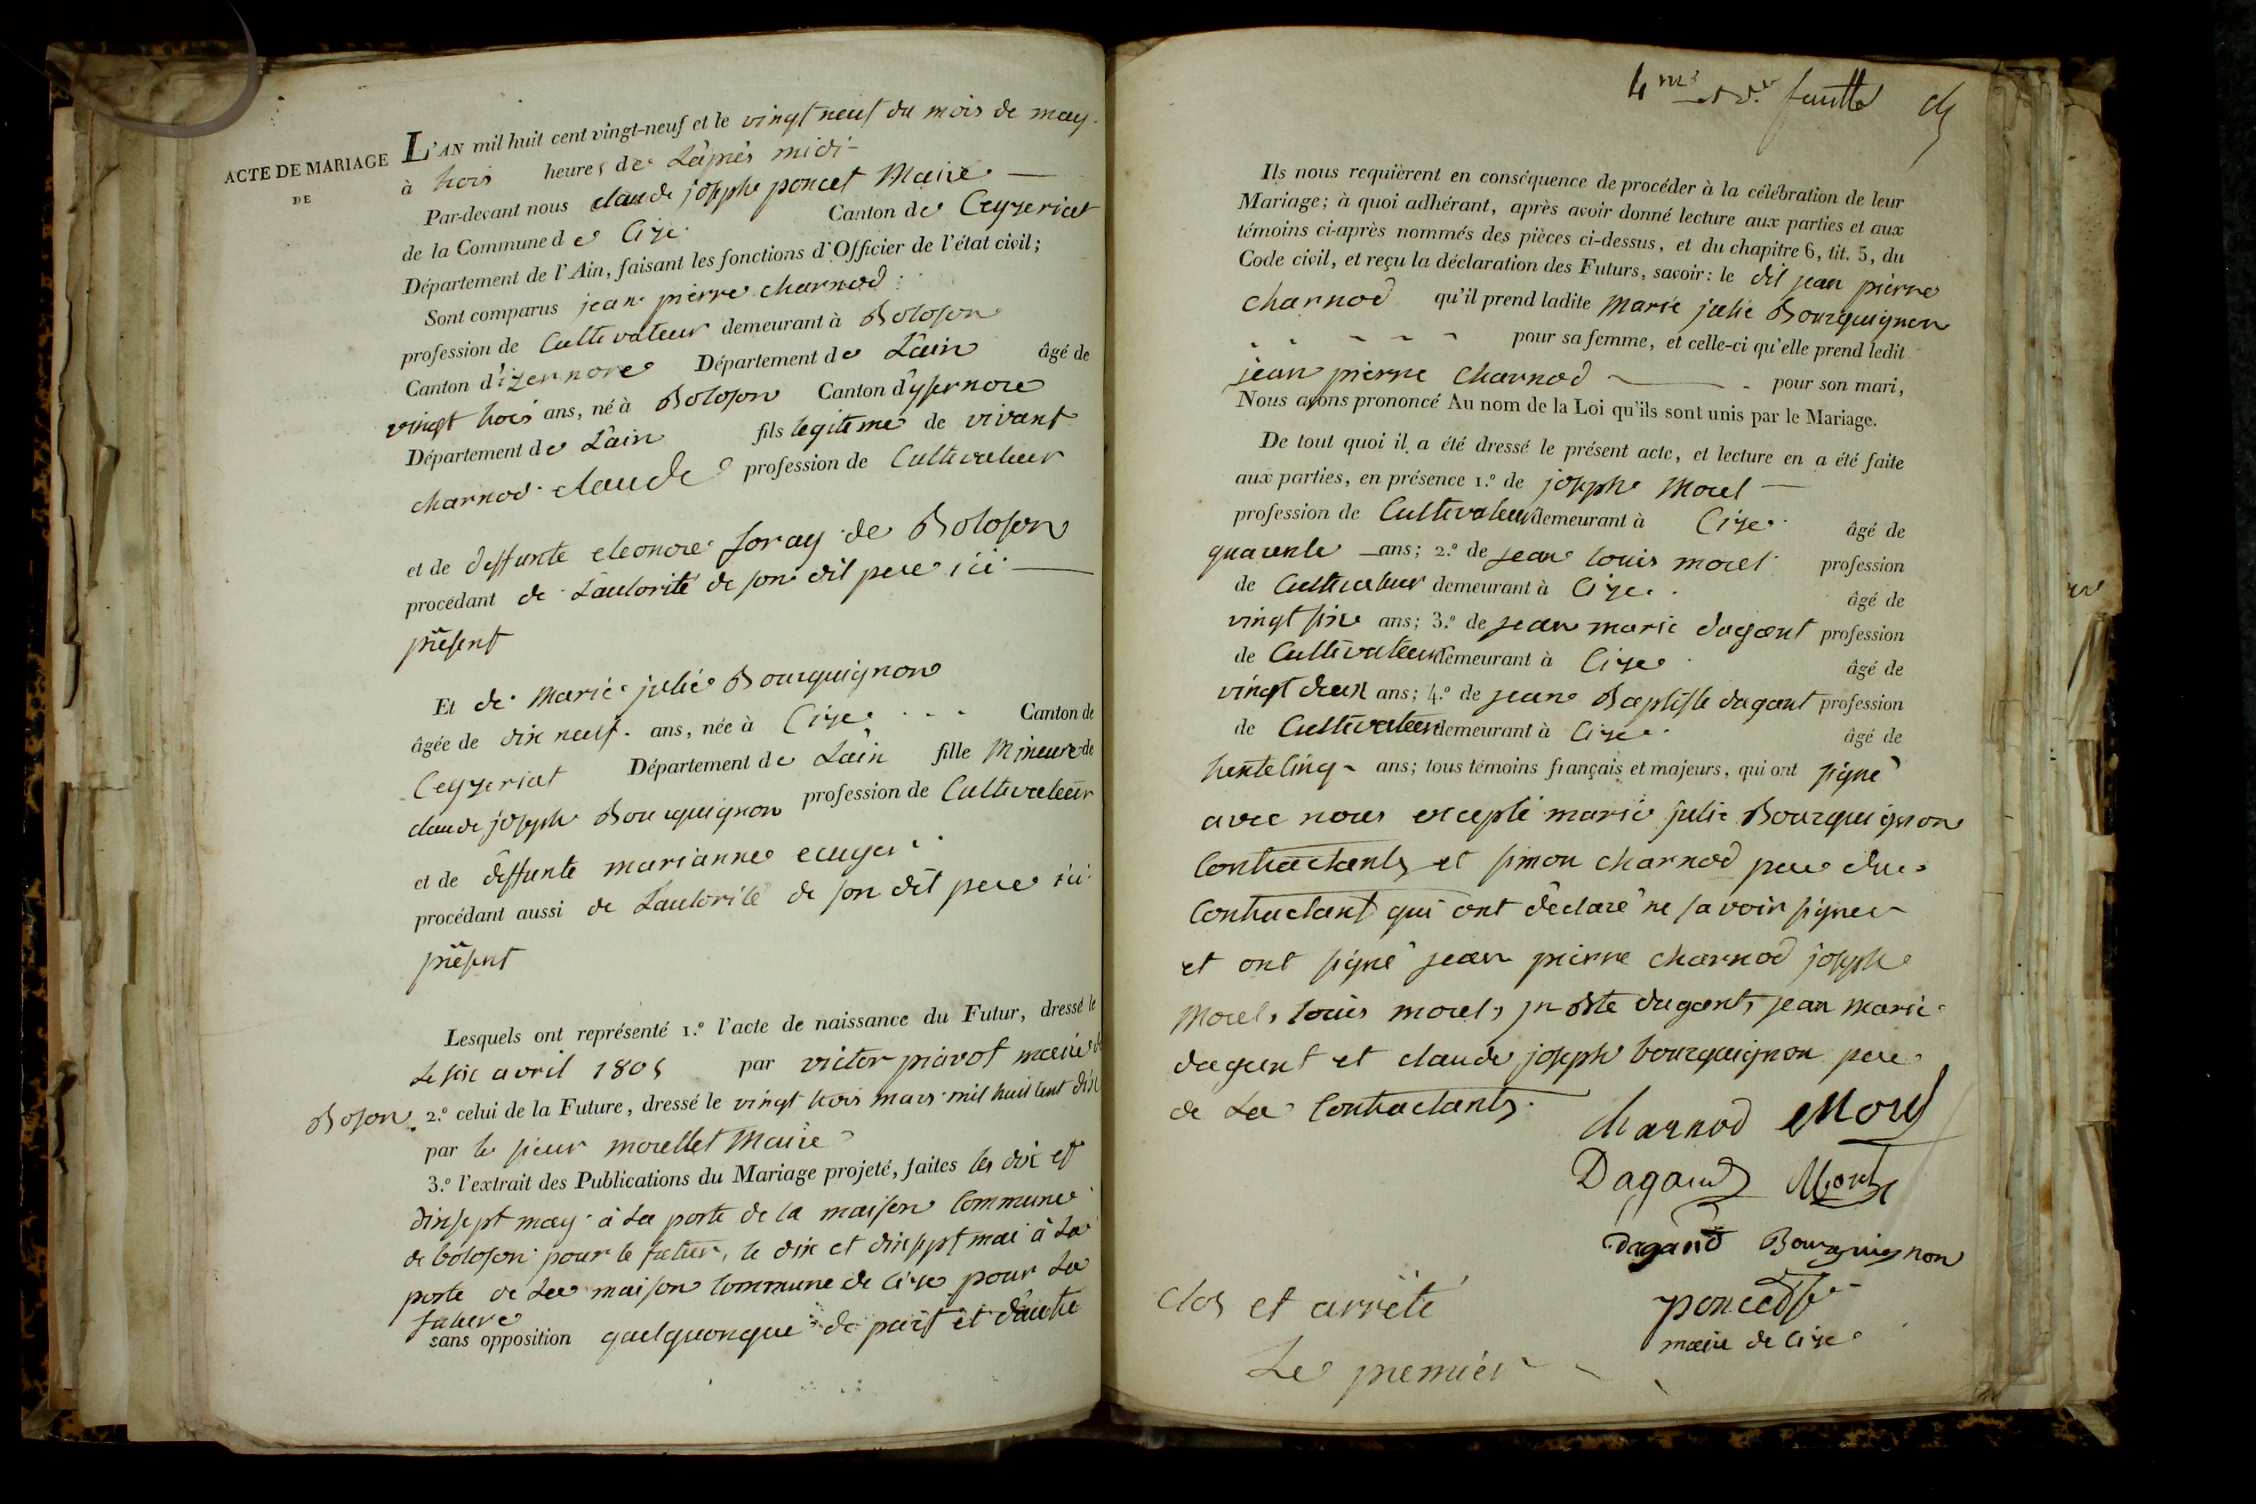 ACTE DE MARIAGE
DE
L'AN mil huit cent vingt-neuf et le vingt neuf du mois de may.
à trois heures de L'après midi
Par-devant nous claude joseph poncet Maire
de la Commune de Cize Canton de Ceyzeriat
Département de l'Ain, faisant les fonctions d'Officier de l'état civil;
Sont comparus jean pierre charnod
profession de Cultivateur demeurant à Boloson
Canton d'izernore Département de L'ain âgé de
vingt trois ans, né à Boloson Canton d'ysernore
Département de L'ain fils legitime de vivant
charnod claude profession de Cultivateur
et de deffunte eleonore foray de Boloson
procédant de L'autorité de son dit pere ici
présent
Et de Marie julie Bourquignon
âgée de dix neuf ans, née à Cize Canton de
Ceyzeriat Département de L'ain fille Mineure de
claude joseph Bourquignon profession de Cultivateur
et de deffunte marianne ecuyer
procédant aussi de L'autorité de son dit pere ici
présent
Lesquels ont représenté 1.º l'acte de naissance du Futur, dressé le
Le six avril 1805 par victor piavot maire de
Boson. 2.º celui de la Future, dressé le vingt trois mars mil huit cent dix
par le sieur morellet Maire
3.º l'extrait des Publications du Mariage projeté, faites les dix et
dixsept may à La porte de la maison Commune
de boloson pour le futur, le dix et dixsept mai à La
porte de La maison Commune de Cize pour La
future
sans opposition quelquonque de part et d'autre
4me et d.er feuille
Ils nous requièrent en conséquence de procéder à la célébration de leur
Mariage; à quoi adhérant, après avoir donné lecture aux parties et aux
témoins ci-après nommés des pièces ci-dessus, et du chapitre 6, tit. 5, du
Code civil, et reçu la déclaration des Futurs, savoir: le dit jean pierre
charnod qu'il prend ladite Marie julie Bourquignon
pour sa femme, et celle-ci qu'elle prend ledit
jean pierre Charnod pour son mari,
Nous avons prononcé Au nom de la Loi qu'ils sont unis par le Mariage.
De tout quoi il a été dressé le présent acte, et lecture en a été faite
aux parties, en présence 1.º de joseph Morel
profession de Cultivateur demeurant à Cize âgé de
quarente ans; 2.º de jean louis morel profession
de Cultivateur demeurant à Cize âgé de
vingt six ans; 3.º de jean marie dagant profession
de Cultivateur demeurant à Cize âgé de
vingt deux ans; 4.º de jean Baptiste dagant profession
de Cultivateur demeurant à Cize âgé de
trente cinq ans; tous témoins français et majeurs, qui ont signé
avec nous excepté marie julie Bourquignon
Contractante et simon charnod pere du
Contractant qui ont déclaré ne savoir signer
et ont signé jean pierre charnod joseph
Morel, louis morel, jn Bte dagant, jean marie
dagant et claude joseph bourquignon pere
de La Contractante.
Charnod Morel
Dagand Morel
Dagand Bourguignon
poncet
maire de Cize
clos et arrêté
Le premier